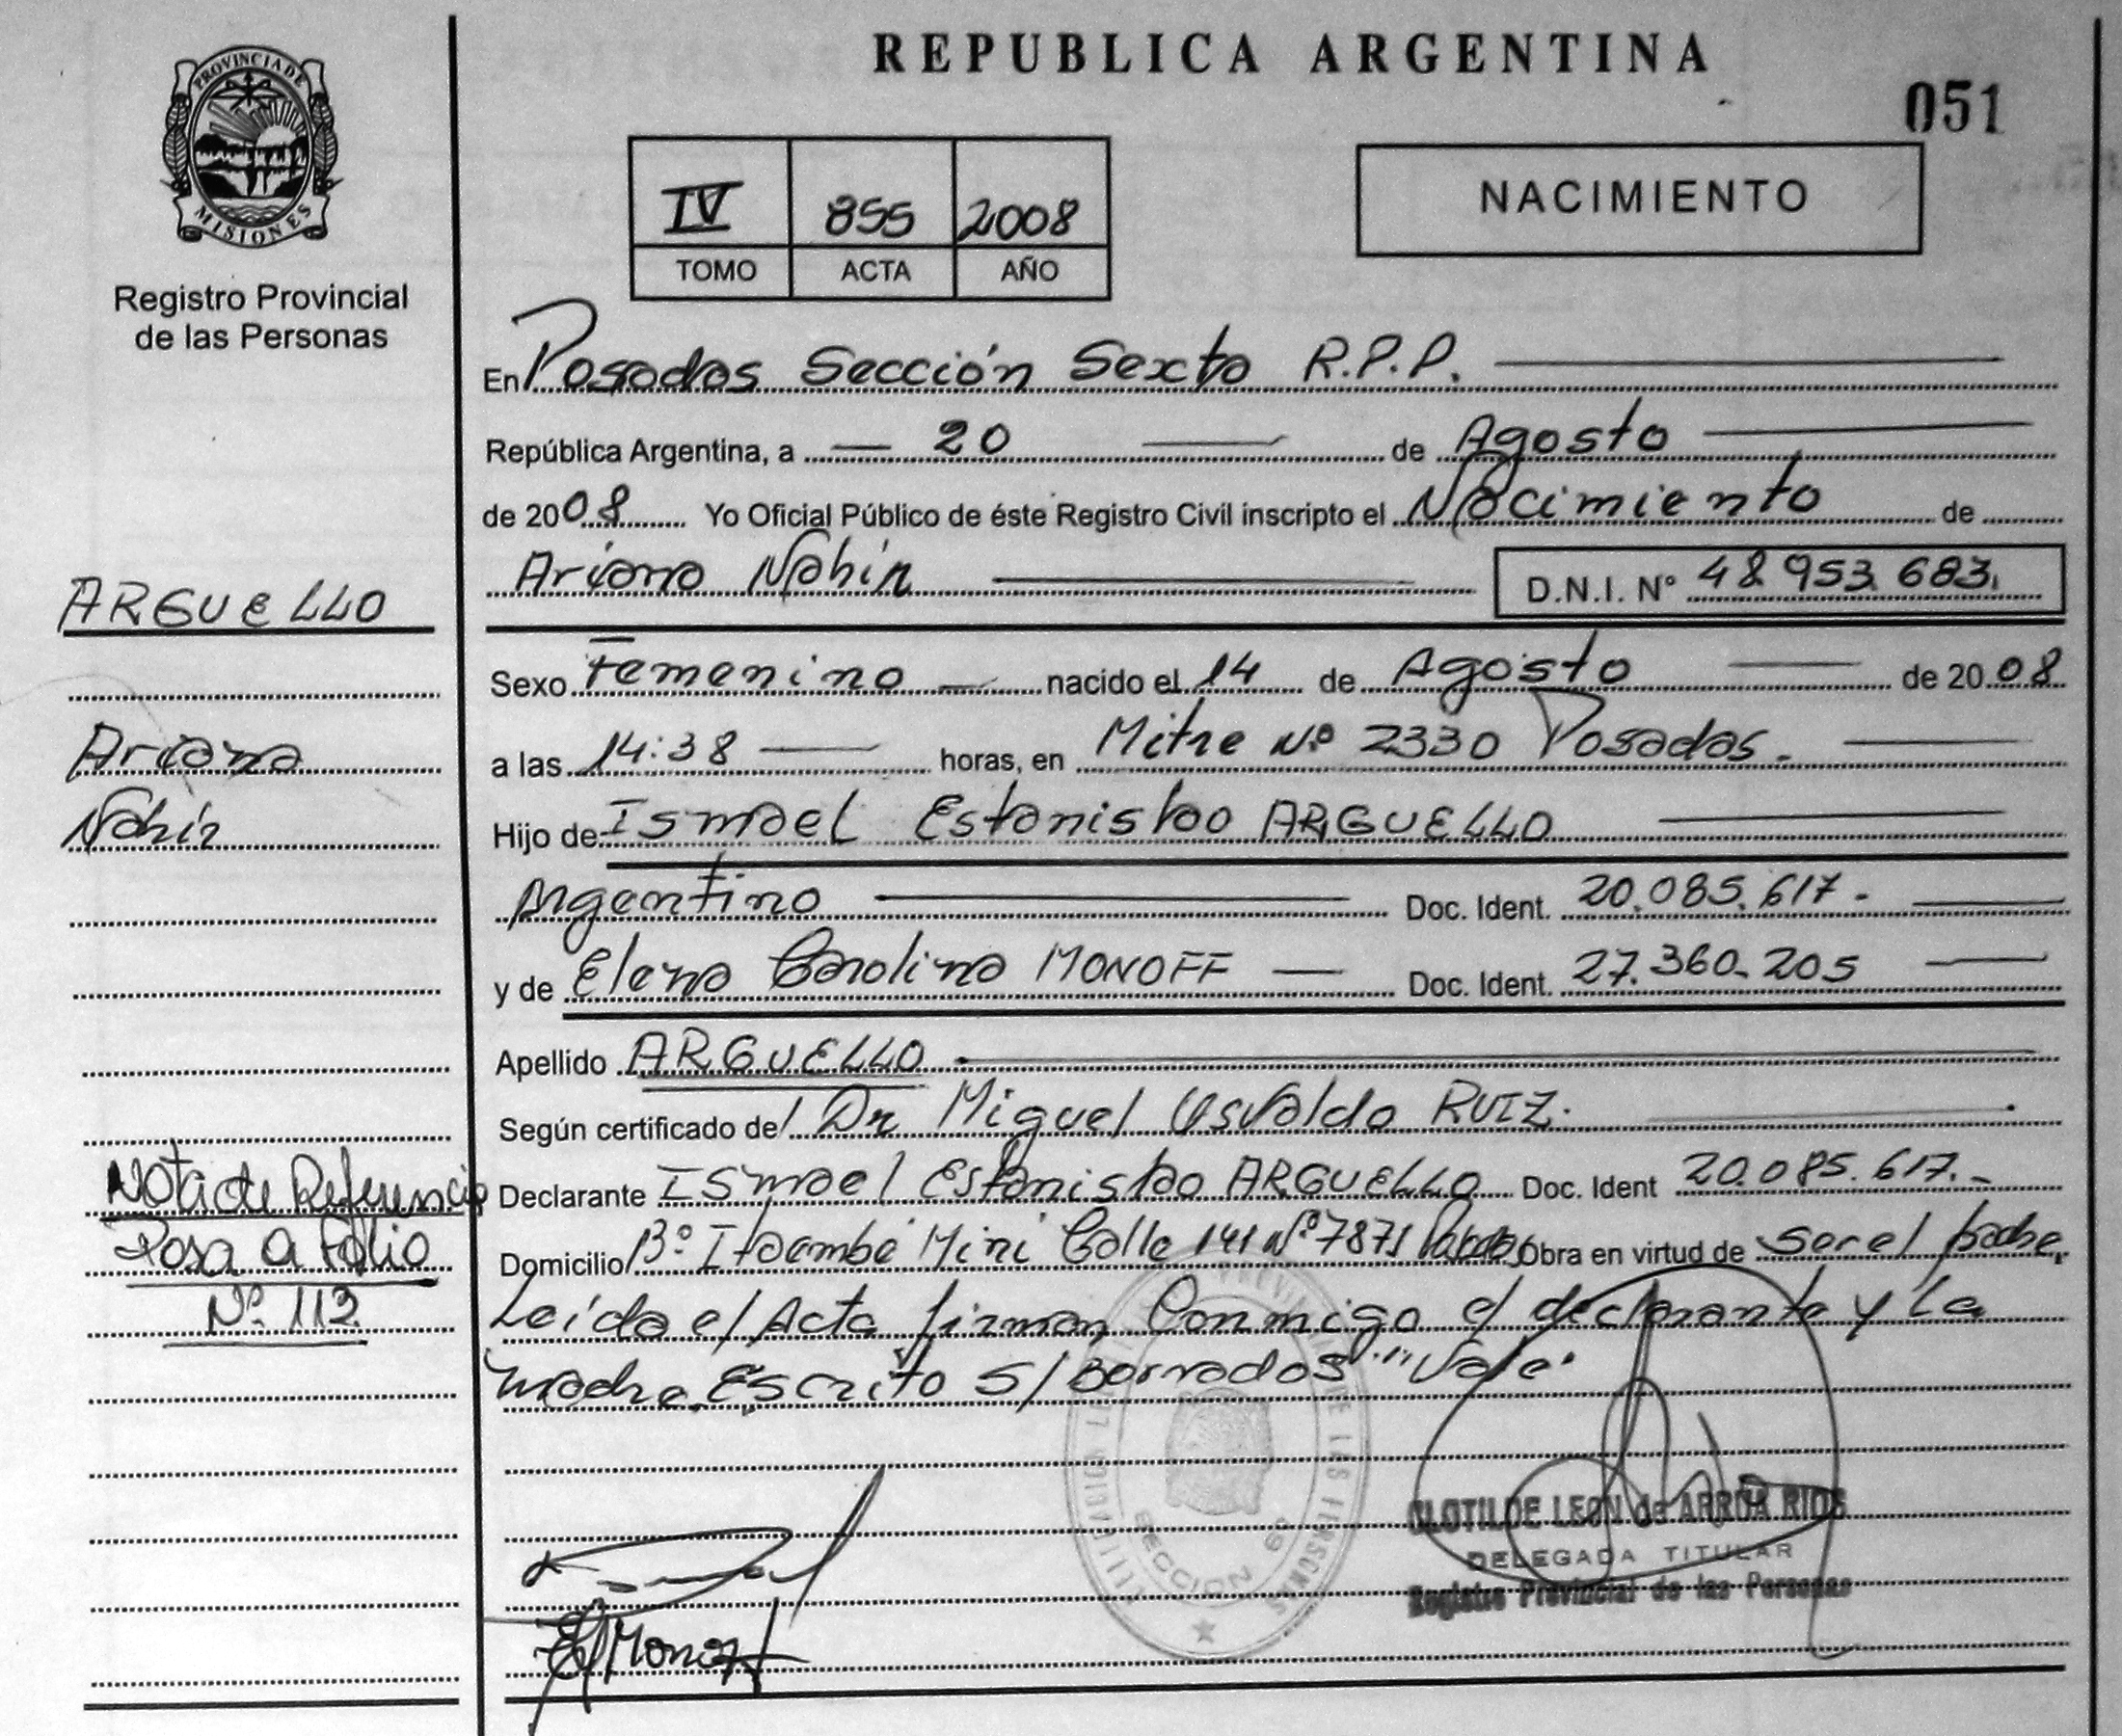 REPUBLICA ARGENTINA
051
PROVINCIA DE
MISIONES
Registro Provincial
de las Personas
IV 855 2008
TOMO ACTA AÑO
NACIMIENTO
En Posadas Sección Sexta R.P.P.
República Argentina, a — 20 — de Agosto
de 2008 Yo Oficial Público de éste Registro Civil inscripto el Nacimiento de
Ariana Nahir D.N.I. Nº 48.953.683.
ARGUELLO
Sexo Femenino nacido el 14 de Agosto de 2008
Ariana
a las 14:38 horas, en Mitre Nº 2330 Posadas.
Nahir
Hijo de Ismael Estanislao ARGUELLO
Argentino Doc. Ident. 20.085.617.
y de Elena Carolina MONOFF Doc. Ident. 27.360.205
Apellido ARGUELLO
Según certificado del Dr Miguel Usvaldo RUIZ.
Nota de Referencia
Declarante Ismael Estanislao ARGUELLO Doc. Ident 20.085.617.
Pasa a Folio
Domicilio Bº Itaembé Mini Calle 141 Nº 7871 Obra en virtud de ser el padre.
Nº 112
Leída el Acta firman Conmigo el declarante y la
madre. Escrito S/Borrados "Vale"
SECCION 6º
CLOTILDE LEON de ARRUA RIOS
DELEGADA TITULAR
Registro Provincial de las Personas